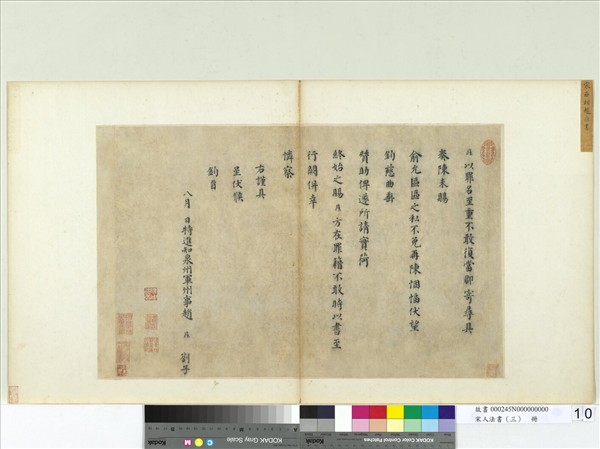 鼎以罪名至重不敢復當郡寄尋具
奏陳未賜
俞允區區之私不免再陳悃愊伏望
鈞慈曲垂
贊助俾遂所請實荷
終始之賜鼎方在罪籍不敢時以書至
行闕併幸
憐察
右謹具
呈伏候
鈞旨
八月 日特進知泉州軍州事趙 鼎 劄子
Kodak
KODAK Gray Scale
C Y M
Kodak
KODAK Color Control Patches
故書 000245N000000000
宋人法書（三） 冊
10